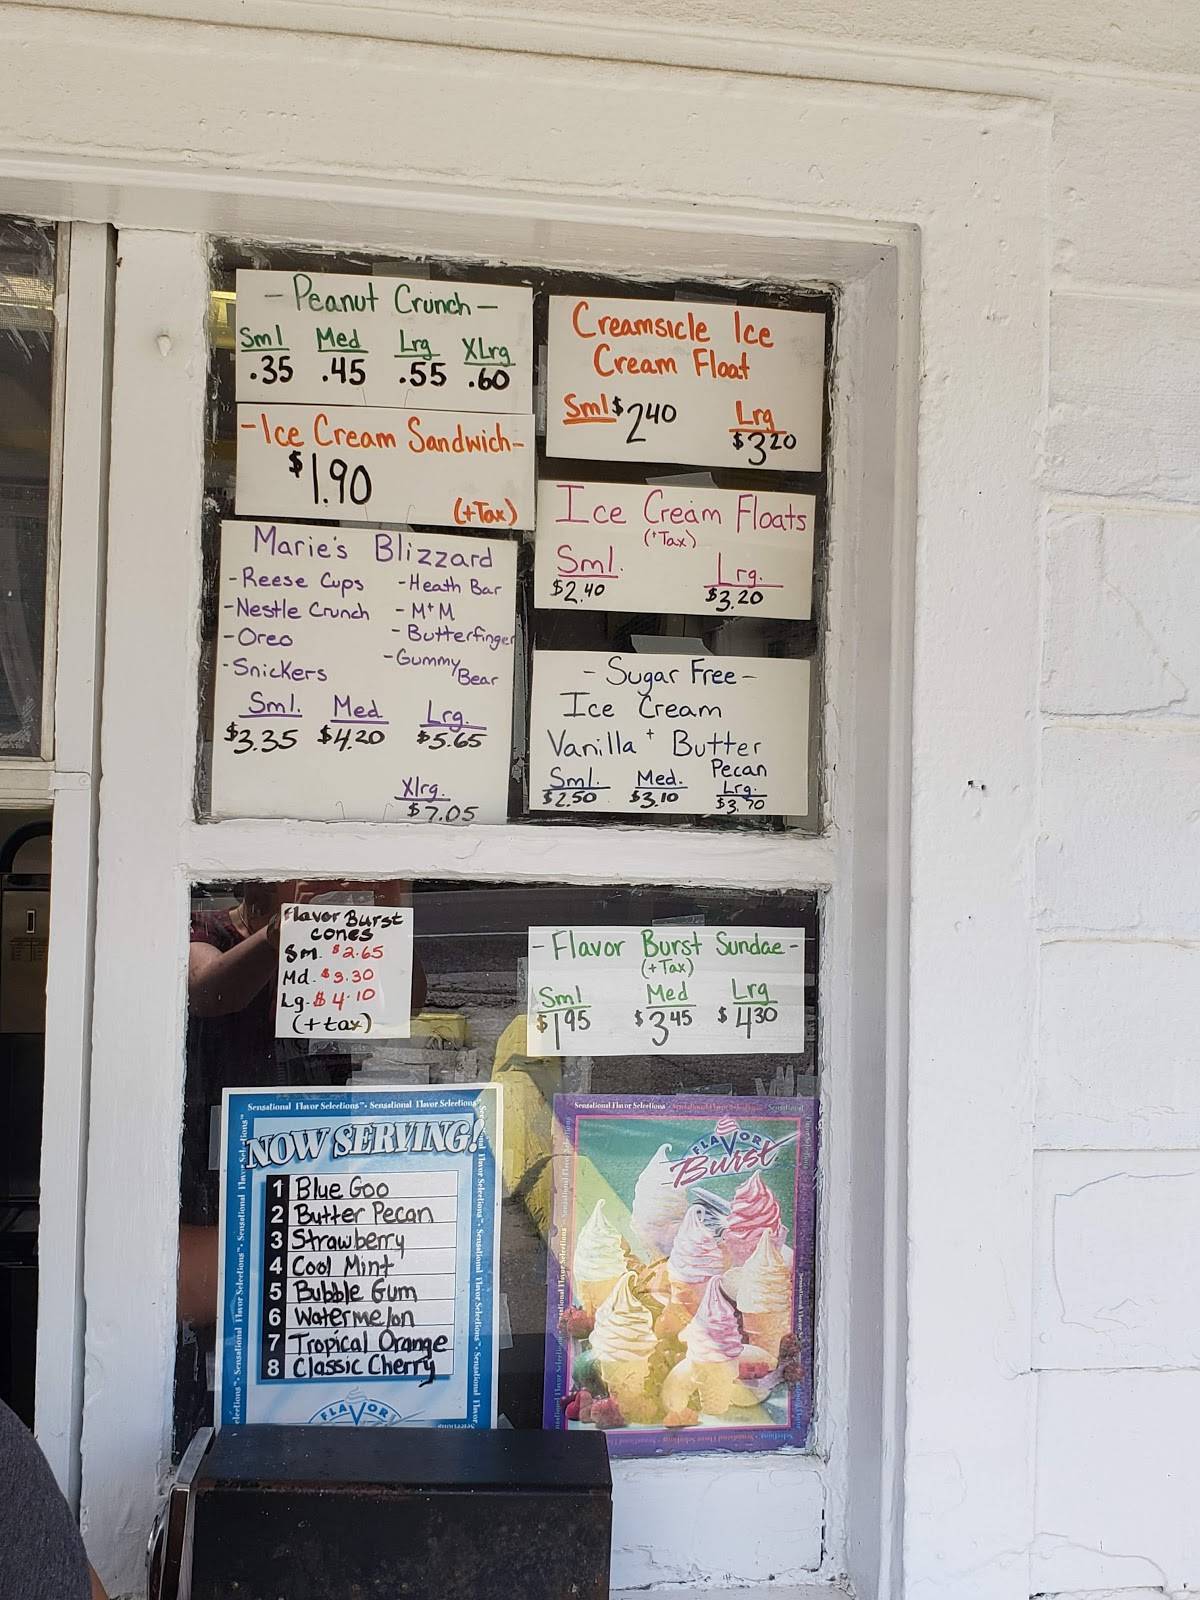 - Peanut Crunch -
Sml Med Lrg XLrg
.35 .45 .55 .60
- Ice Cream Sandwich -
$1.90
(+Tax)
Marie's Blizzard
- Reese Cups - Heath Bar
- Nestle Crunch - M+M
- Oreo - Butterfinger
- Snickers - Gummy Bear
Sml. Med. Lrg.
$3.35 $4.20 $5.65
Xlrg.
$7.05
Creamsicle Ice
Cream Float
Sml $2.40 Lrg
$3.20
Ice Cream Floats
(+Tax)
Sml. Lrg.
$2.40 $3.20
- Sugar Free -
Ice Cream
Vanilla + Butter
Pecan
Sml. Med. Lrg.
$2.50 $3.10 $3.70
Flavor Burst
cones
Sm. $2.65
Md. $3.30
Lg. $4.10
(+tax)
- Flavor Burst Sundae -
(+Tax)
Sml Med Lrg
$1.95 $3.45 $4.30
Sensational Flavor Selections™ · Sensational Flavor Selections
NOW SERVING!
1 Blue Goo
2 Butter Pecan
3 Strawberry
4 Cool Mint
5 Bubble Gum
6 Watermelon
7 Tropical Orange
8 Classic Cherry
FLAVOR
Sensational Flavor Selections
FLAVOR
Burst